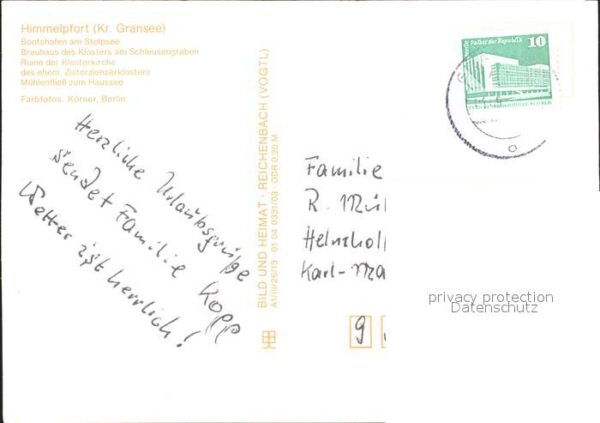 Himmelpfort (Kr. Gransee)
Bootshafen am Stolpsee
Brauhaus des Klosters am Schleusengraben
Ruine der Klosterkirche
des ehem. Zisterzienserklosters
Mühlenfließ zum Haussee
Farbfotos: Körner, Berlin
Herzliche Urlaubsgrüße
sendet Familie Kopp
Wetter ist herrlich!
BILD UND HEIMAT · REICHENBACH (VOGTL)
A1/III/26/13 01 04 0331/03 · DDR 0,20 M
Palast der Republik
10
Familie
R. Mül
Helmholt
Karl-Ma
9
privacy protection
Datenschutz